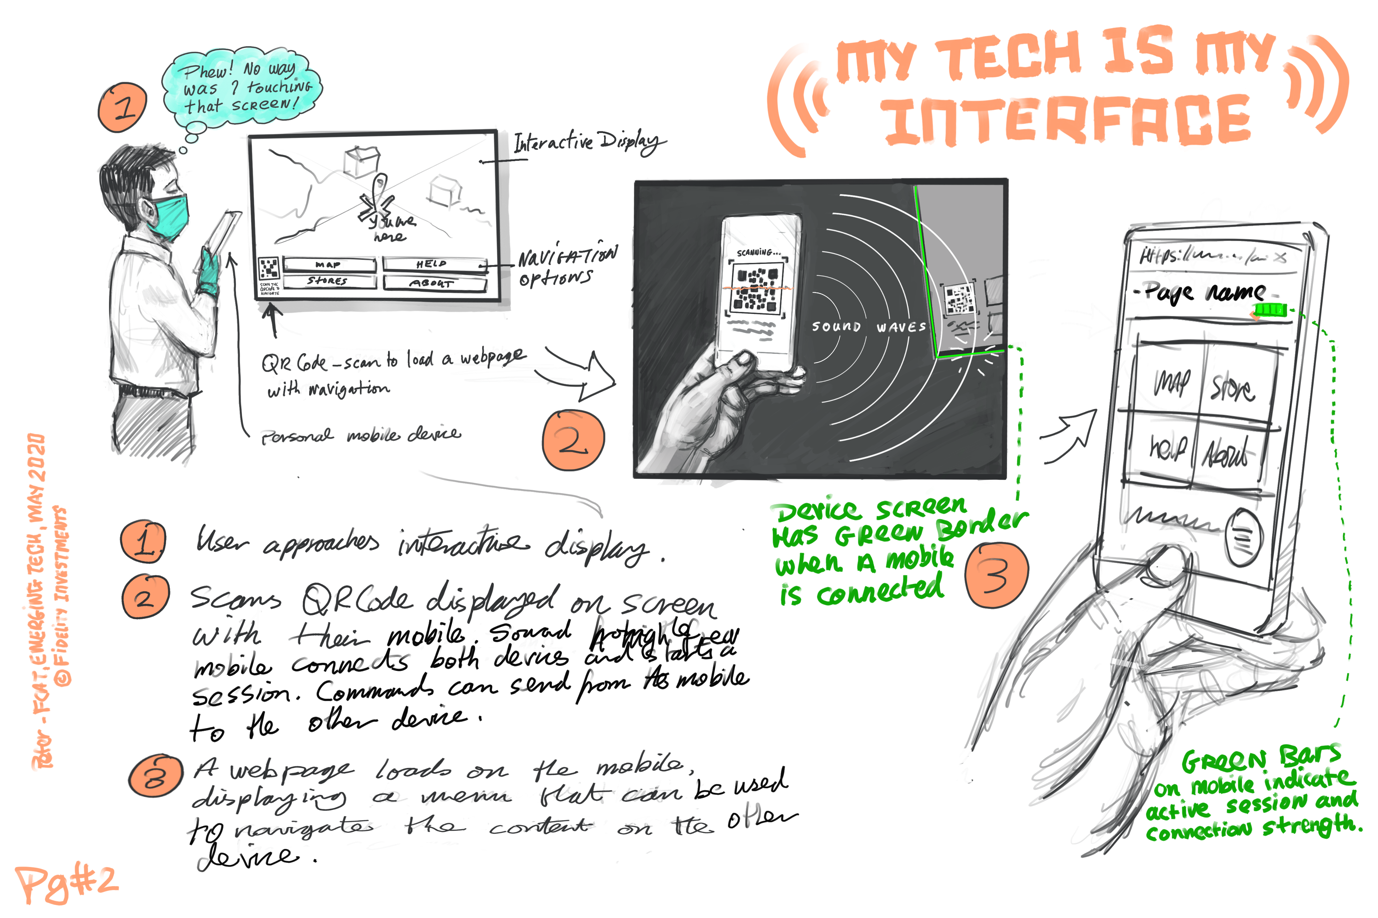 MY TECH IS MY
INTERFACE
1
Phew! No way
was I touching
that SCREEN!
Interactive Display
You are
here
MAP
HELP
STORES
ABOUT
NAVIGATION
OPTIONS
QR Code - scan to load a webpage
with navigation
Personal mobile device
2
SCANNING...
SOUND WAVES
DEVICE SCREEN
HAS GREEN BORDER
when A mobile
is connected
3
Https://
- Page name -
map
store
help
About
GREEN BARS
on mobile indicate
active session and
connection strength.
1 User approaches interactive display.
2 Scans QR Code displayed on screen
with their mobile. Sound
mobile connects both devices and starts a
session. Commands can send from the mobile
to the other device.
3 A webpage loads on the mobile,
displaying a menu that can be used
to navigate the content on the other
device.
Peter - FCAT, EMERGING TECH, MAY 2020
© FIDELITY INVESTMENTS
Pg#2